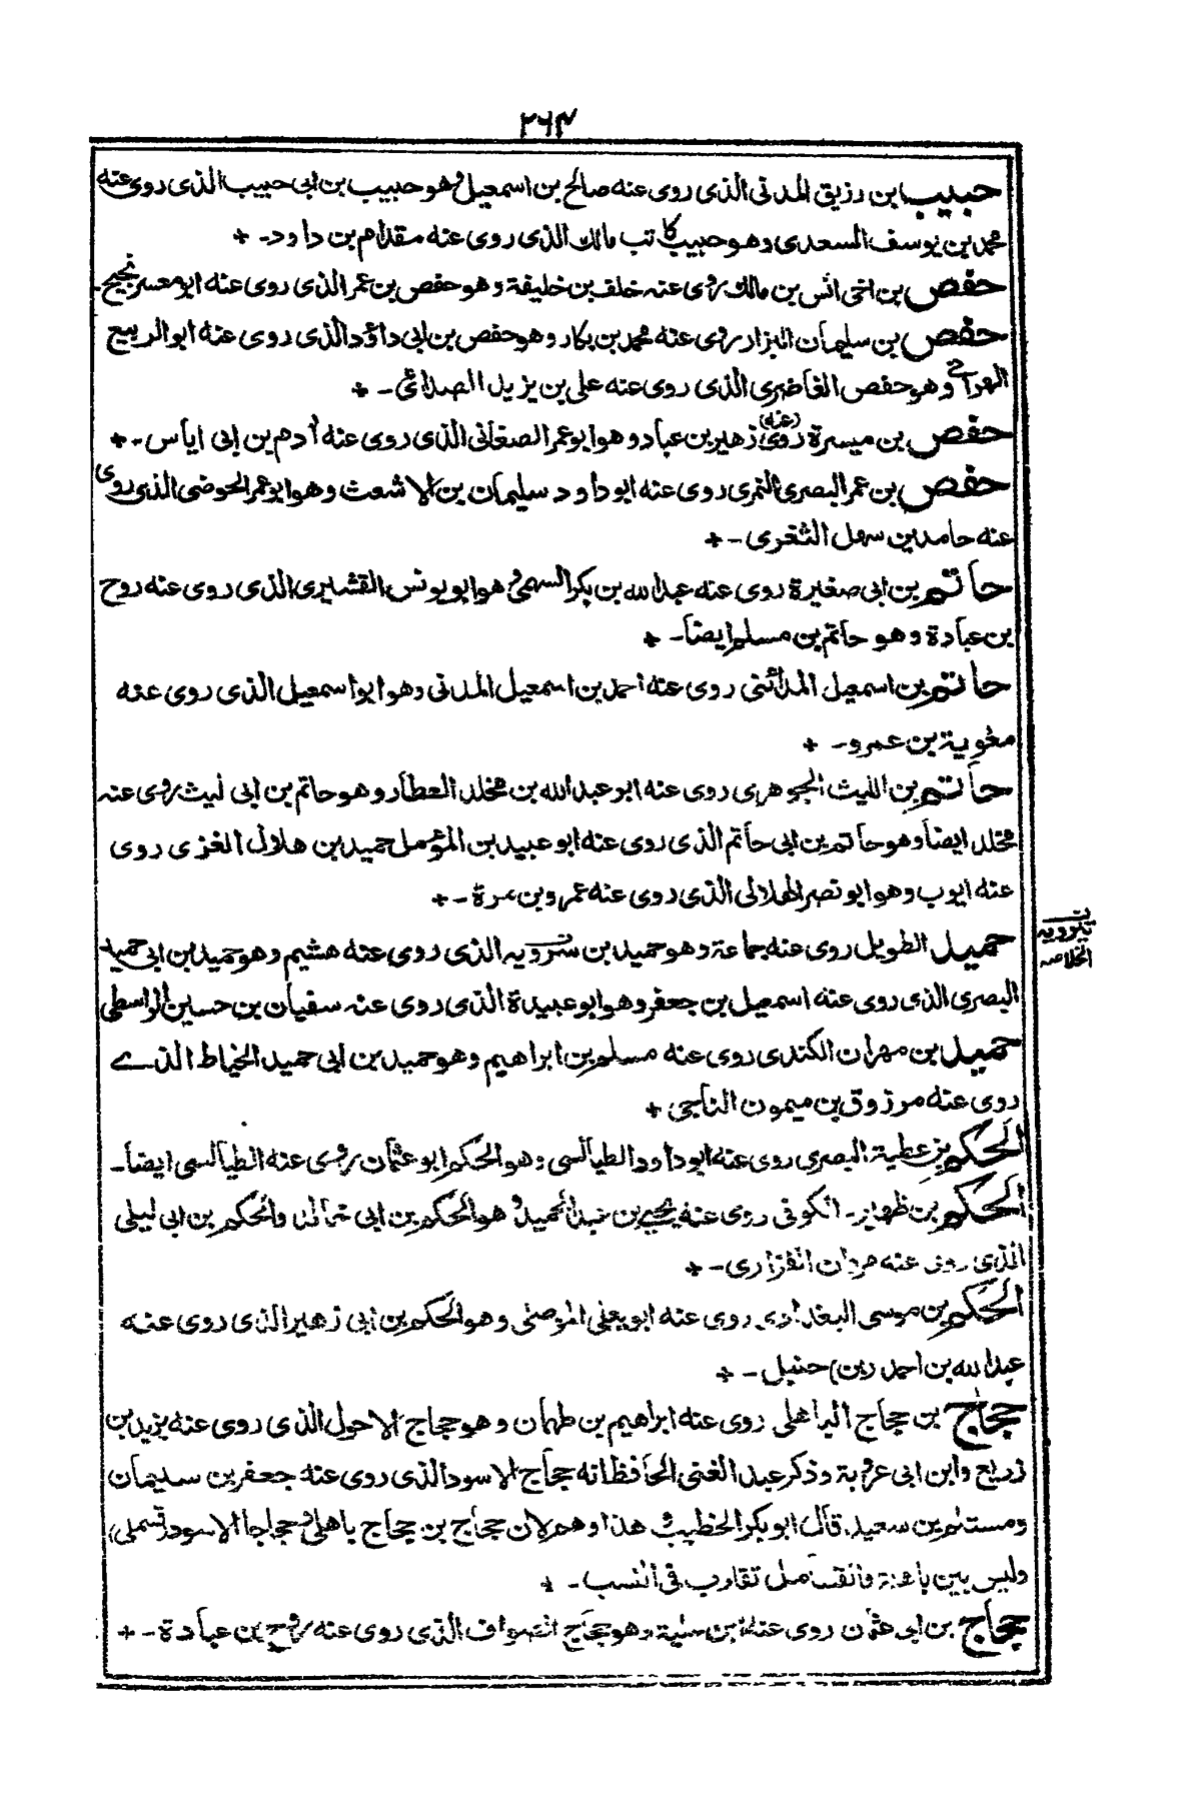 ٢٦٣
حبيب بن رزيق المدنى الذى روى عنه صالح بن اسمعيل وهو حبيب بن ابى حبيب الذى روى عنه
محمد بن يوسف السعدى وهو حبيب كاتب مالك الذى روى عنه مقدام بن داود- +
حفص بن اخى انس بن مالك روى عنه خلف بن خليفة وهو حفص بن عمر الذى روى عنه ابو معسر نجيح-
حفص بن سليمان البزار روى عنه محمد بن بكار وهو حفص بن ابى داؤد الذى روى عنه ابو الربيع
الهرانے وهو حفص الغاضرى الذى روى عنه على بن يزيد الصدائى- +
حفص بن ميسرة روى (عنه) زهير بن عباد وهو ابو عمر الصغانى الذى روى عنه آدم بن ابى اياس-+
حفص بن عمر البصرى النمرى روى عنه ابو داود سليمان بن الاشعث وهو ابو عمر الحوضى الذى روى
عنه حامد بن سهل الثغرى-+
حاتم بن ابى صغيرة روى عنه عبد الله بن بكر السهمى وهو ابو يونس القشيرى الذى روى عنه روح
بن عبادة وهو حاتم بن مسلم ايضا- +
حاتم بن اسمعيل المدائنى روى عنه احمد بن اسمعيل المدنى وهو ابو اسمعيل الذى روى عنه
مغوية بن عمرو- +
حاتم بن الليث الجوهرى روى عنه ابو عبد الله بن مخلد العطار وهو حاتم بن ابى ليث روى عنه
مخلد ايضا وهو حاتم بن ابى حاتم الذى روى عنه ابو عبيد بن المؤمل حميد بن هلال الغزى روى
عنه ايوب وهو ابو نصر الهلالى الذى روى عنه عمرو بن مرة-+
حميل الطويل روى عنه جماعة وهو حميد بن سرويه الذى روى عنه هشيم وهو حميد بن ابى حميد
تيرويه
الخلاصه
البصرى الذى روى عنه اسمعيل بن جعفر وهو ابو عبيدة الذى روى عنه سفيان بن حسين الواسطى
حميد بن مهران الكندى روى عنه مسلم بن ابراهيم وهو حميد بن ابى حميد الخياط الذے
روى عنه مرزوق بن ميمون الناجى +
الحكم بن عطية البصرى روى عنه ابو داود الطيالسى وهو الحكم ابو عثمان روى عنه الطيالسى ايضا-
الحكم بن ظهير- الكوفى روى عنه يحيى بن عبد الحميد وهو الحكم بن ابى خالد والحكم بن ابى ليلى
الذى روى عنه مروان الفزارى-+
الحكم بن موسى البغدادى روى عنه ابو يعلى الموصلى وهو الحكم بن ابى زهير الذى روى عنه
عبد الله بن احمد (بن) حنبل-+
حجاج بن حجاج الباهلى روى عنه ابراهيم بن طهمان وهو حجاج الاحول الذى روى عنه يزيد بن
زريع وابن ابى عروبة وذكر عبد الغنى الحافظ انه حجاج الاسود الذى روى عنه جعفر بن سليمان
ومسلم بن سعيد. قال ابو بكر الخطيب وهذا وهم لان حجاج بن حجاج باهلى وحجاجا الاسود (قسملى)
وليس بين باهلة والقسامل تقارب فى النسب- +
حجاج بن ابى عثمان روى عنه ابن علية وهو حجاج الصواف الذى روى عنه روح بن عبادة-+